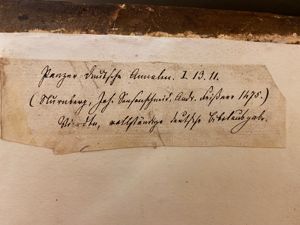 Panzer deutsche Annalen. I. 13. 11.
(Nürnberg, Joh. Sensenschmid. Andr. Frißner 1475.)
Vierte, vollständige deutsche Bibelausgabe.